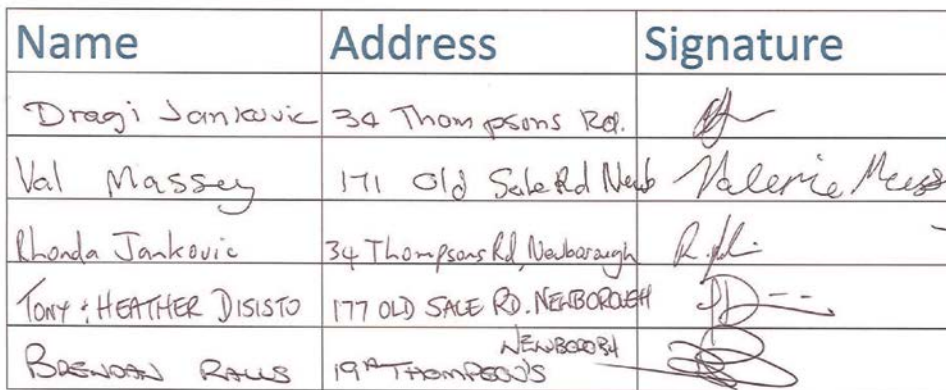 Name Address Signature
Dragi Jankovic 34 Thompsons Rd.
Val Massey 171 Old Sale Rd Newb Valerie
Rhonda Jankovic 34 Thompsons Rd, Newborough
TONY & HEATHER DISISTO 177 OLD SALE RD. NEWBOROUGH
NEWBOROUGH
BRENDAN 19A THOMPSON'S